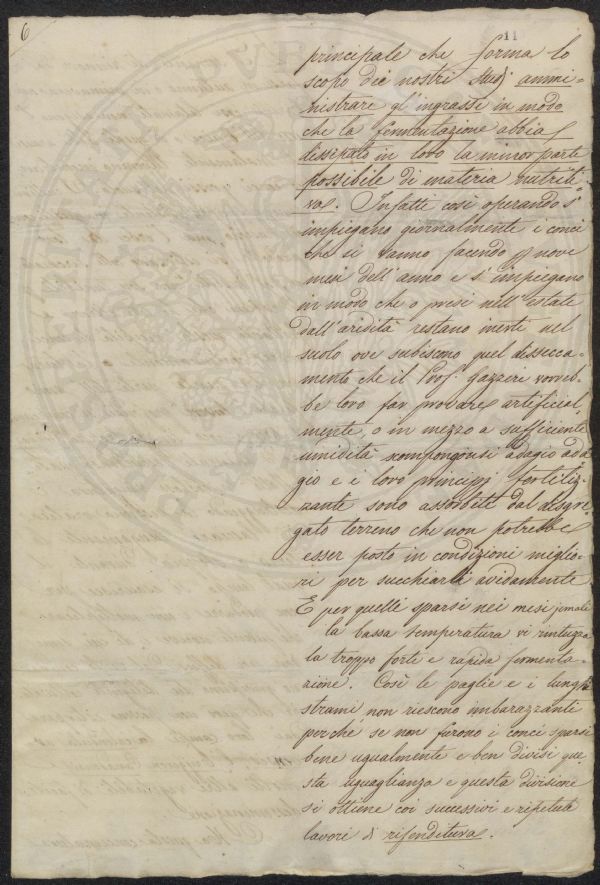 6
11
principale che forma lo
scopo dei nostri studj ammi-
nistrare gl'ingrassi in modo
che la fermentazione abbia
dissipato in loro la minor parte
possibile di materia nutriti-
va. Infatti così operando s'
impiegano giornalmente i conci
che si vanno facendo p nove
mesi dell'anno e s'impiegano
in modo che o presi nell'estate
dall'aridità restano inerti nel
suolo ove subiscono quel dissecca-
mento che il Prof. Gazzeri vorreb-
be loro far provare artificial-
mente, o in mezzo a sufficiente
umidità scompongonsi adagio ada-
gio e i loro principj fertiliz-
zante sono assorbiti dal disgre-
gato terreno che non potrebbe
esser posto in condizioni miglio-
ri per succhiarli avidamente
E per quelli sparsi nei mesi jemali
la bassa temperatura vi rintuzza
la troppo forte e rapida fermenta-
zione. Così le paglie e i lunghi
strami non riescono imbarazzanti
perché se non furono i conci sparsi
bene ugualmente e ben divisi que-
sta uguaglianza e questa divisione
si ottiene coi successivi e ripetuti
lavori di rifenditura.